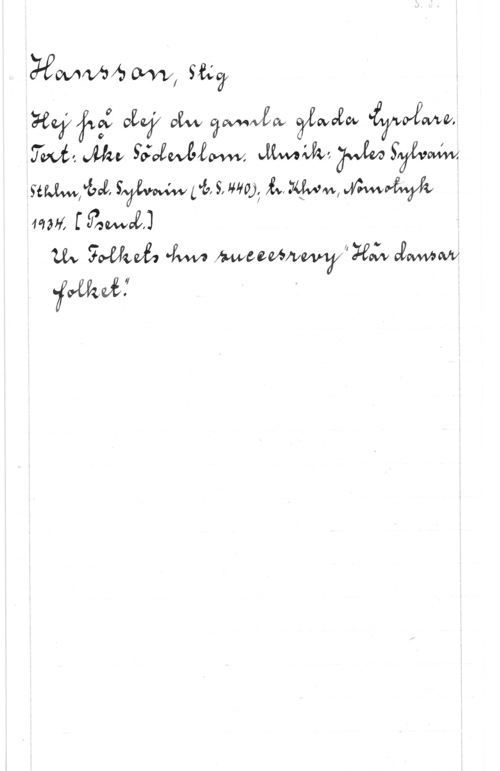 Hansson, Stig
Hej på dej du gamla glada Tyrolare.
Text: Åke Söderblom. Musik: Jules Sylvain.
Sthlm, Ed. Sylvain (E. S. 440); tr. Khvn, Nornotryk
1934. [Pseud.]
Ur Folkets hus succesrevy "Här dansar
folket".